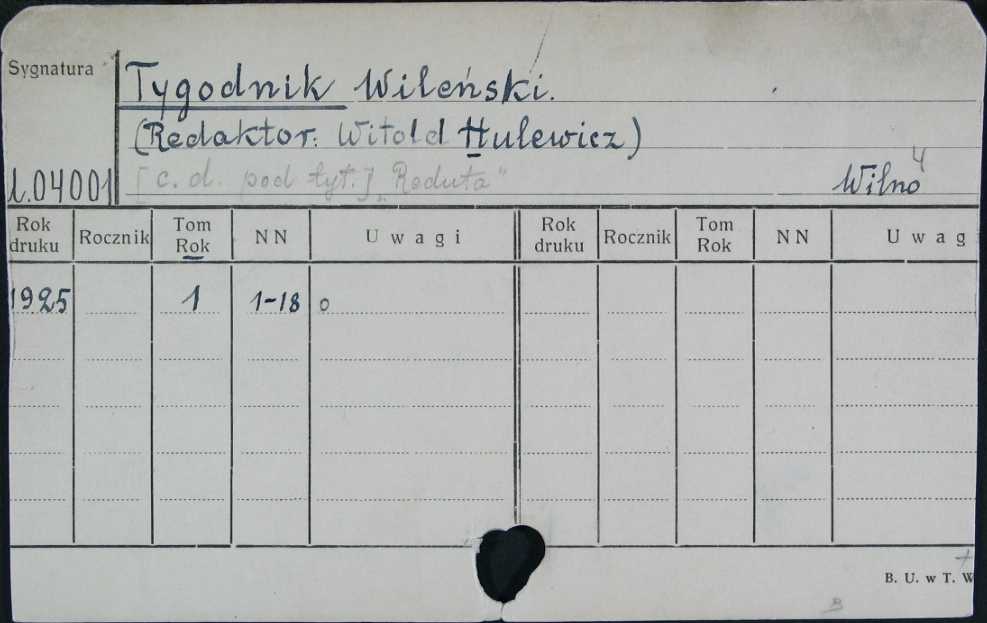 Sygnatura
Tygodnik Wileński.
(Redaktor: Witold Hulewicz)
4
1.04001 [c. d. pod tyt.] „Reduta" Wilno
Rok druku Rocznik Tom Rok NN Uwagi Rok druku Rocznik Tom Rok NN Uwag
1925 1 1-18 o
B. U. w T. W
B